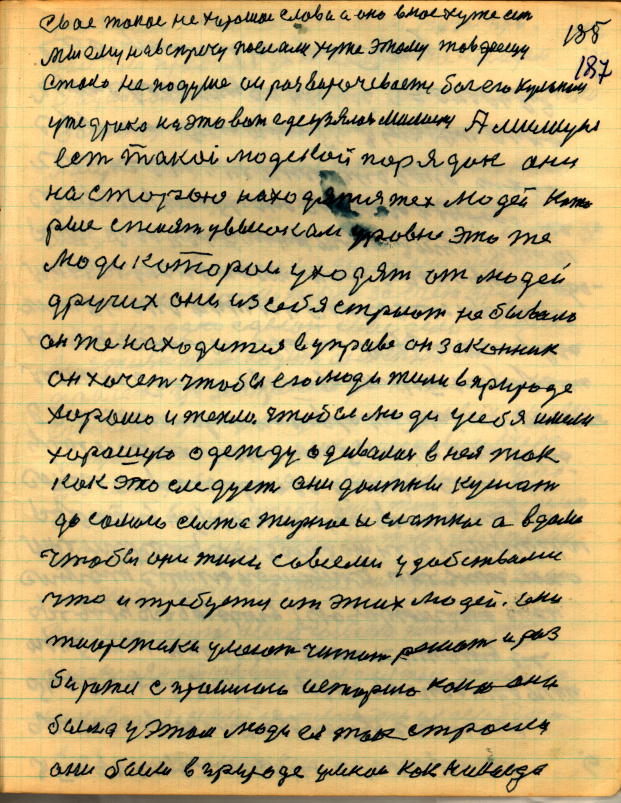 свое такое не хорошое слова а оно в нос хуже ст
мы ему навстречу послали хуже этому товарещу
стало на подуше он разварочевает бог его культ
уже драка на это вот где взялся милицыя А милицыи
188
187
ест такой людской порядок они
на сторою находятся тех людей кото
рые стоят увысоком уровне это те
люди которои уходят от людей
других они из себя строют небывало
он же находится в управе он законник
он хочет чтобы его люди жили в природе
хорошо и тепло. чтобы люди у себя имели
хорошую одежду одивалися в нея так
как это следует они должны кушат
до самого сыта жирное и слаткое а в доме
чтобы они жили со всеми удобствами
что и требуется от этих людей. они
тиоретики умеют читат решат и раз
биратся с правилою историею како она
была у этой люди её так строили
они были в природе умном как никогда